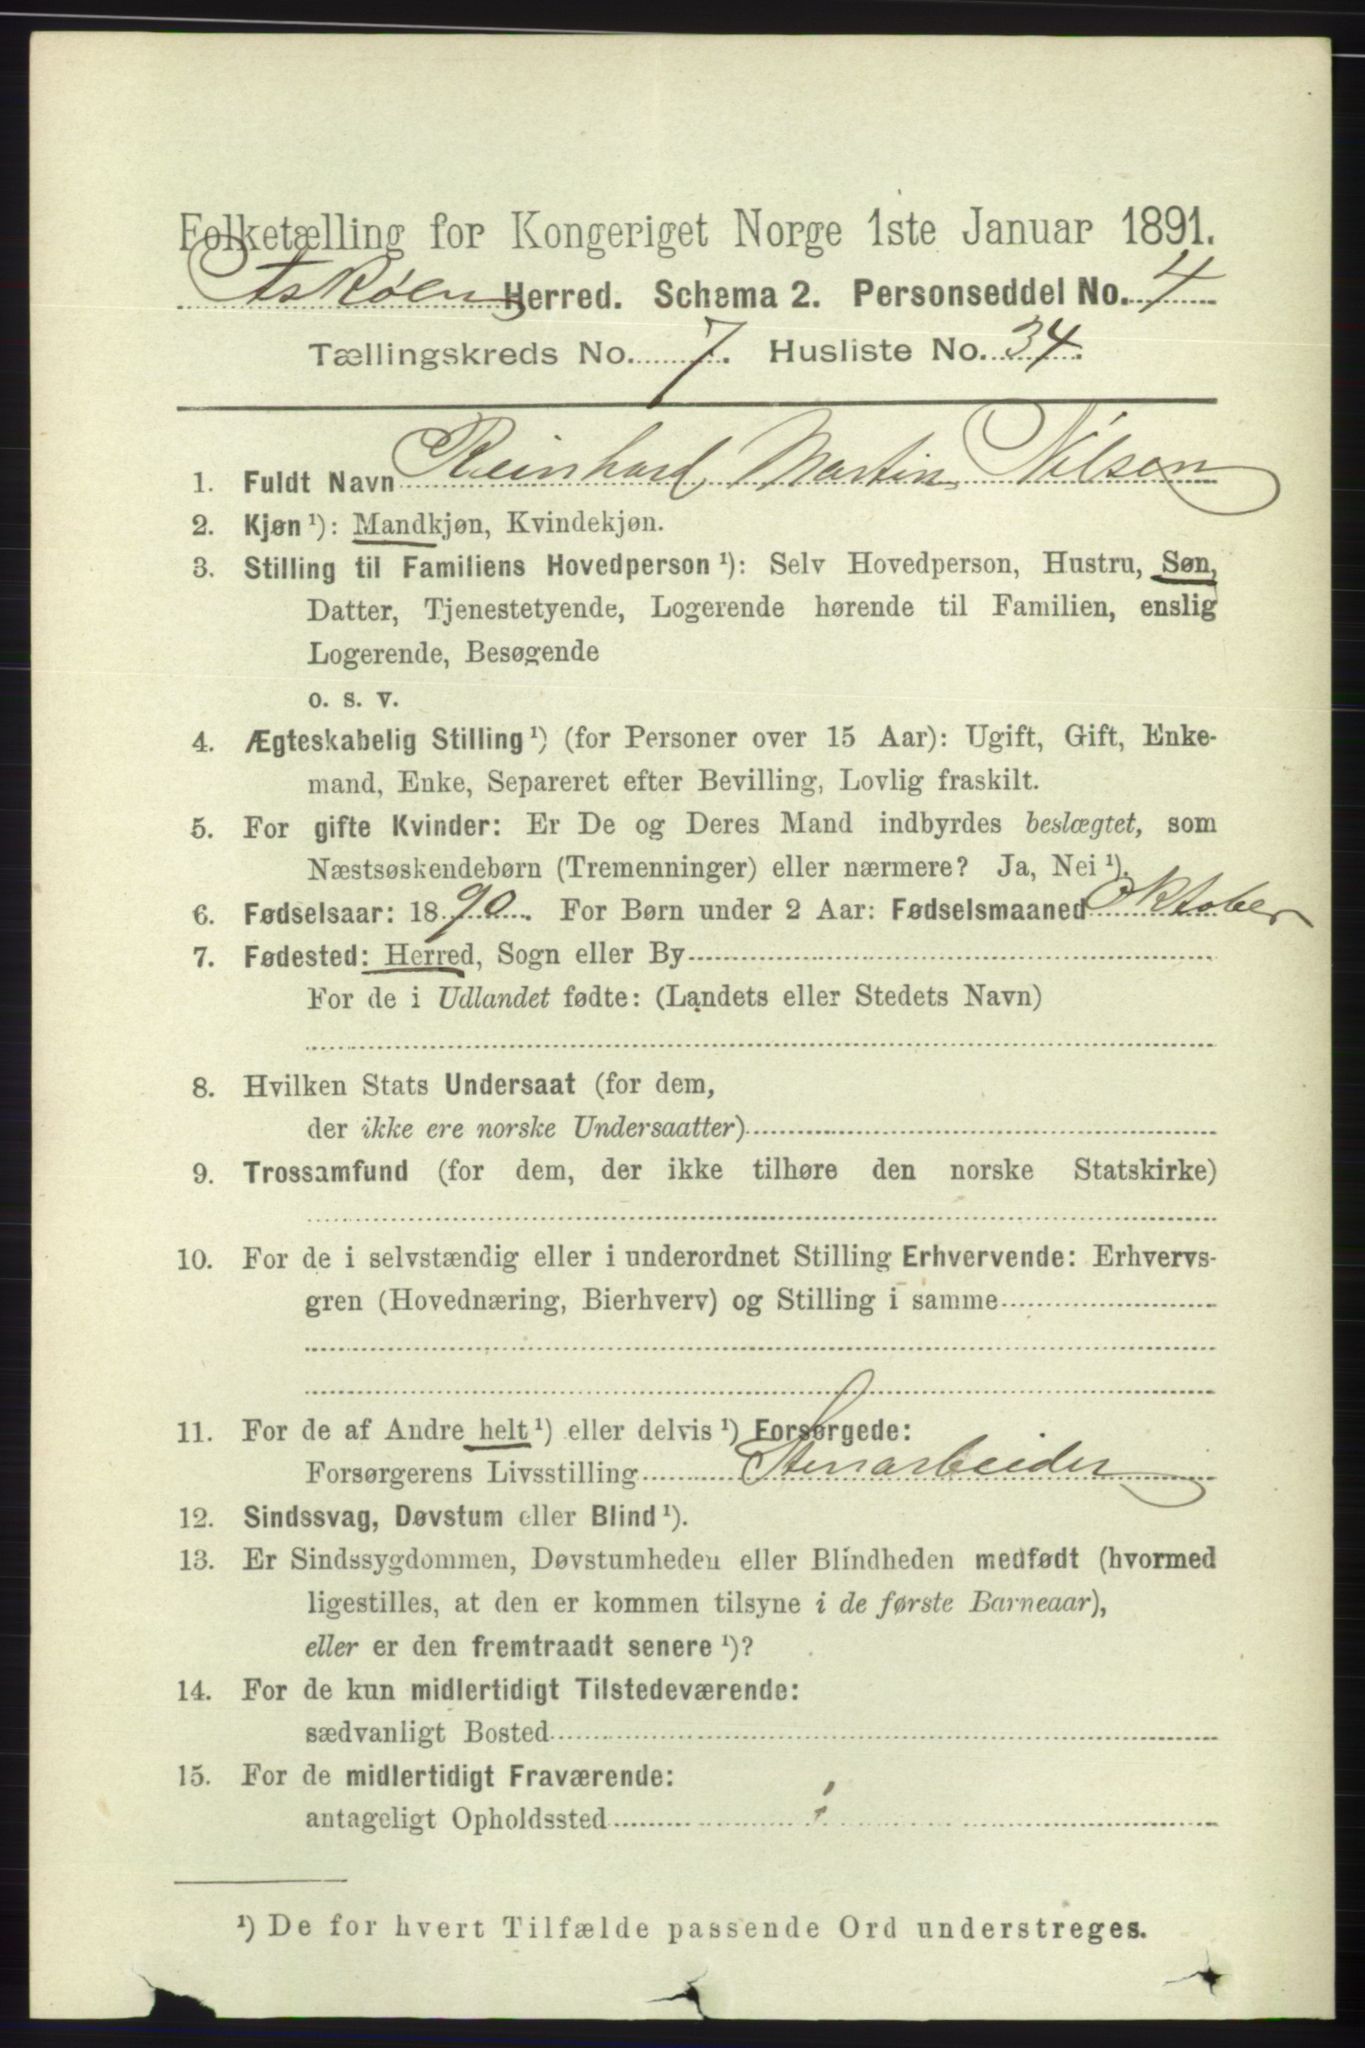 Folketælling for Kongeriget Norge 1ste Januar 1891.
Askøen Herred. Schema 2. Personseddel No. 4
Tællingskreds No. 7. Husliste No. 34.
1. Fuldt Navn Reinhard Martin Nilsen
2. Kjøn ¹): Mandkjøn, Kvindekjøn.
3. Stilling til Familiens Hovedperson ¹): Selv Hovedperson, Hustru, Søn,
Datter, Tjenestetyende, Logerende hørende til Familien, enslig
Logerende, Besøgende
o. s. v.
4. Ægteskabelig Stilling ¹) (for Personer over 15 Aar): Ugift, Gift, Enke-
mand, Enke, Separeret efter Bevilling, Lovlig fraskilt.
5. For gifte Kvinder: Er De og Deres Mand indbyrdes beslægtet, som
Næstsøskendebørn (Tremenninger) eller nærmere? Ja, Nei ¹).
6. Fødselsaar: 1890. For Børn under 2 Aar: Fødselsmaaned Oktober
7. Fødested: Herred, Sogn eller By
For de i Udlandet fødte: (Landets eller Stedets Navn)
8. Hvilken Stats Undersaat (for dem,
der ikke ere norske Undersaatter)
9. Trossamfund (for dem, der ikke tilhøre den norske Statskirke)
10. For de i selvstændig eller i underordnet Stilling Erhvervende: Erhvervs-
gren (Hovednæring, Bierhverv) og Stilling i samme
11. For de af Andre helt ¹) eller delvis ¹) Forsørgede:
Forsørgerens Livsstilling Stenarbeider
12. Sindssvag, Døvstum eller Blind ¹).
13. Er Sindssygdommen, Døvstumheden eller Blindheden medfødt (hvormed
ligestilles, at den er kommen tilsyne i de første Barneaar),
eller er den fremtraadt senere ¹)?
14. For de kun midlertidigt Tilstedeværende:
sædvanligt Bosted
15. For de midlertidigt Fraværende:
antageligt Opholdssted
¹) De for hvert Tilfælde passende Ord understreges.